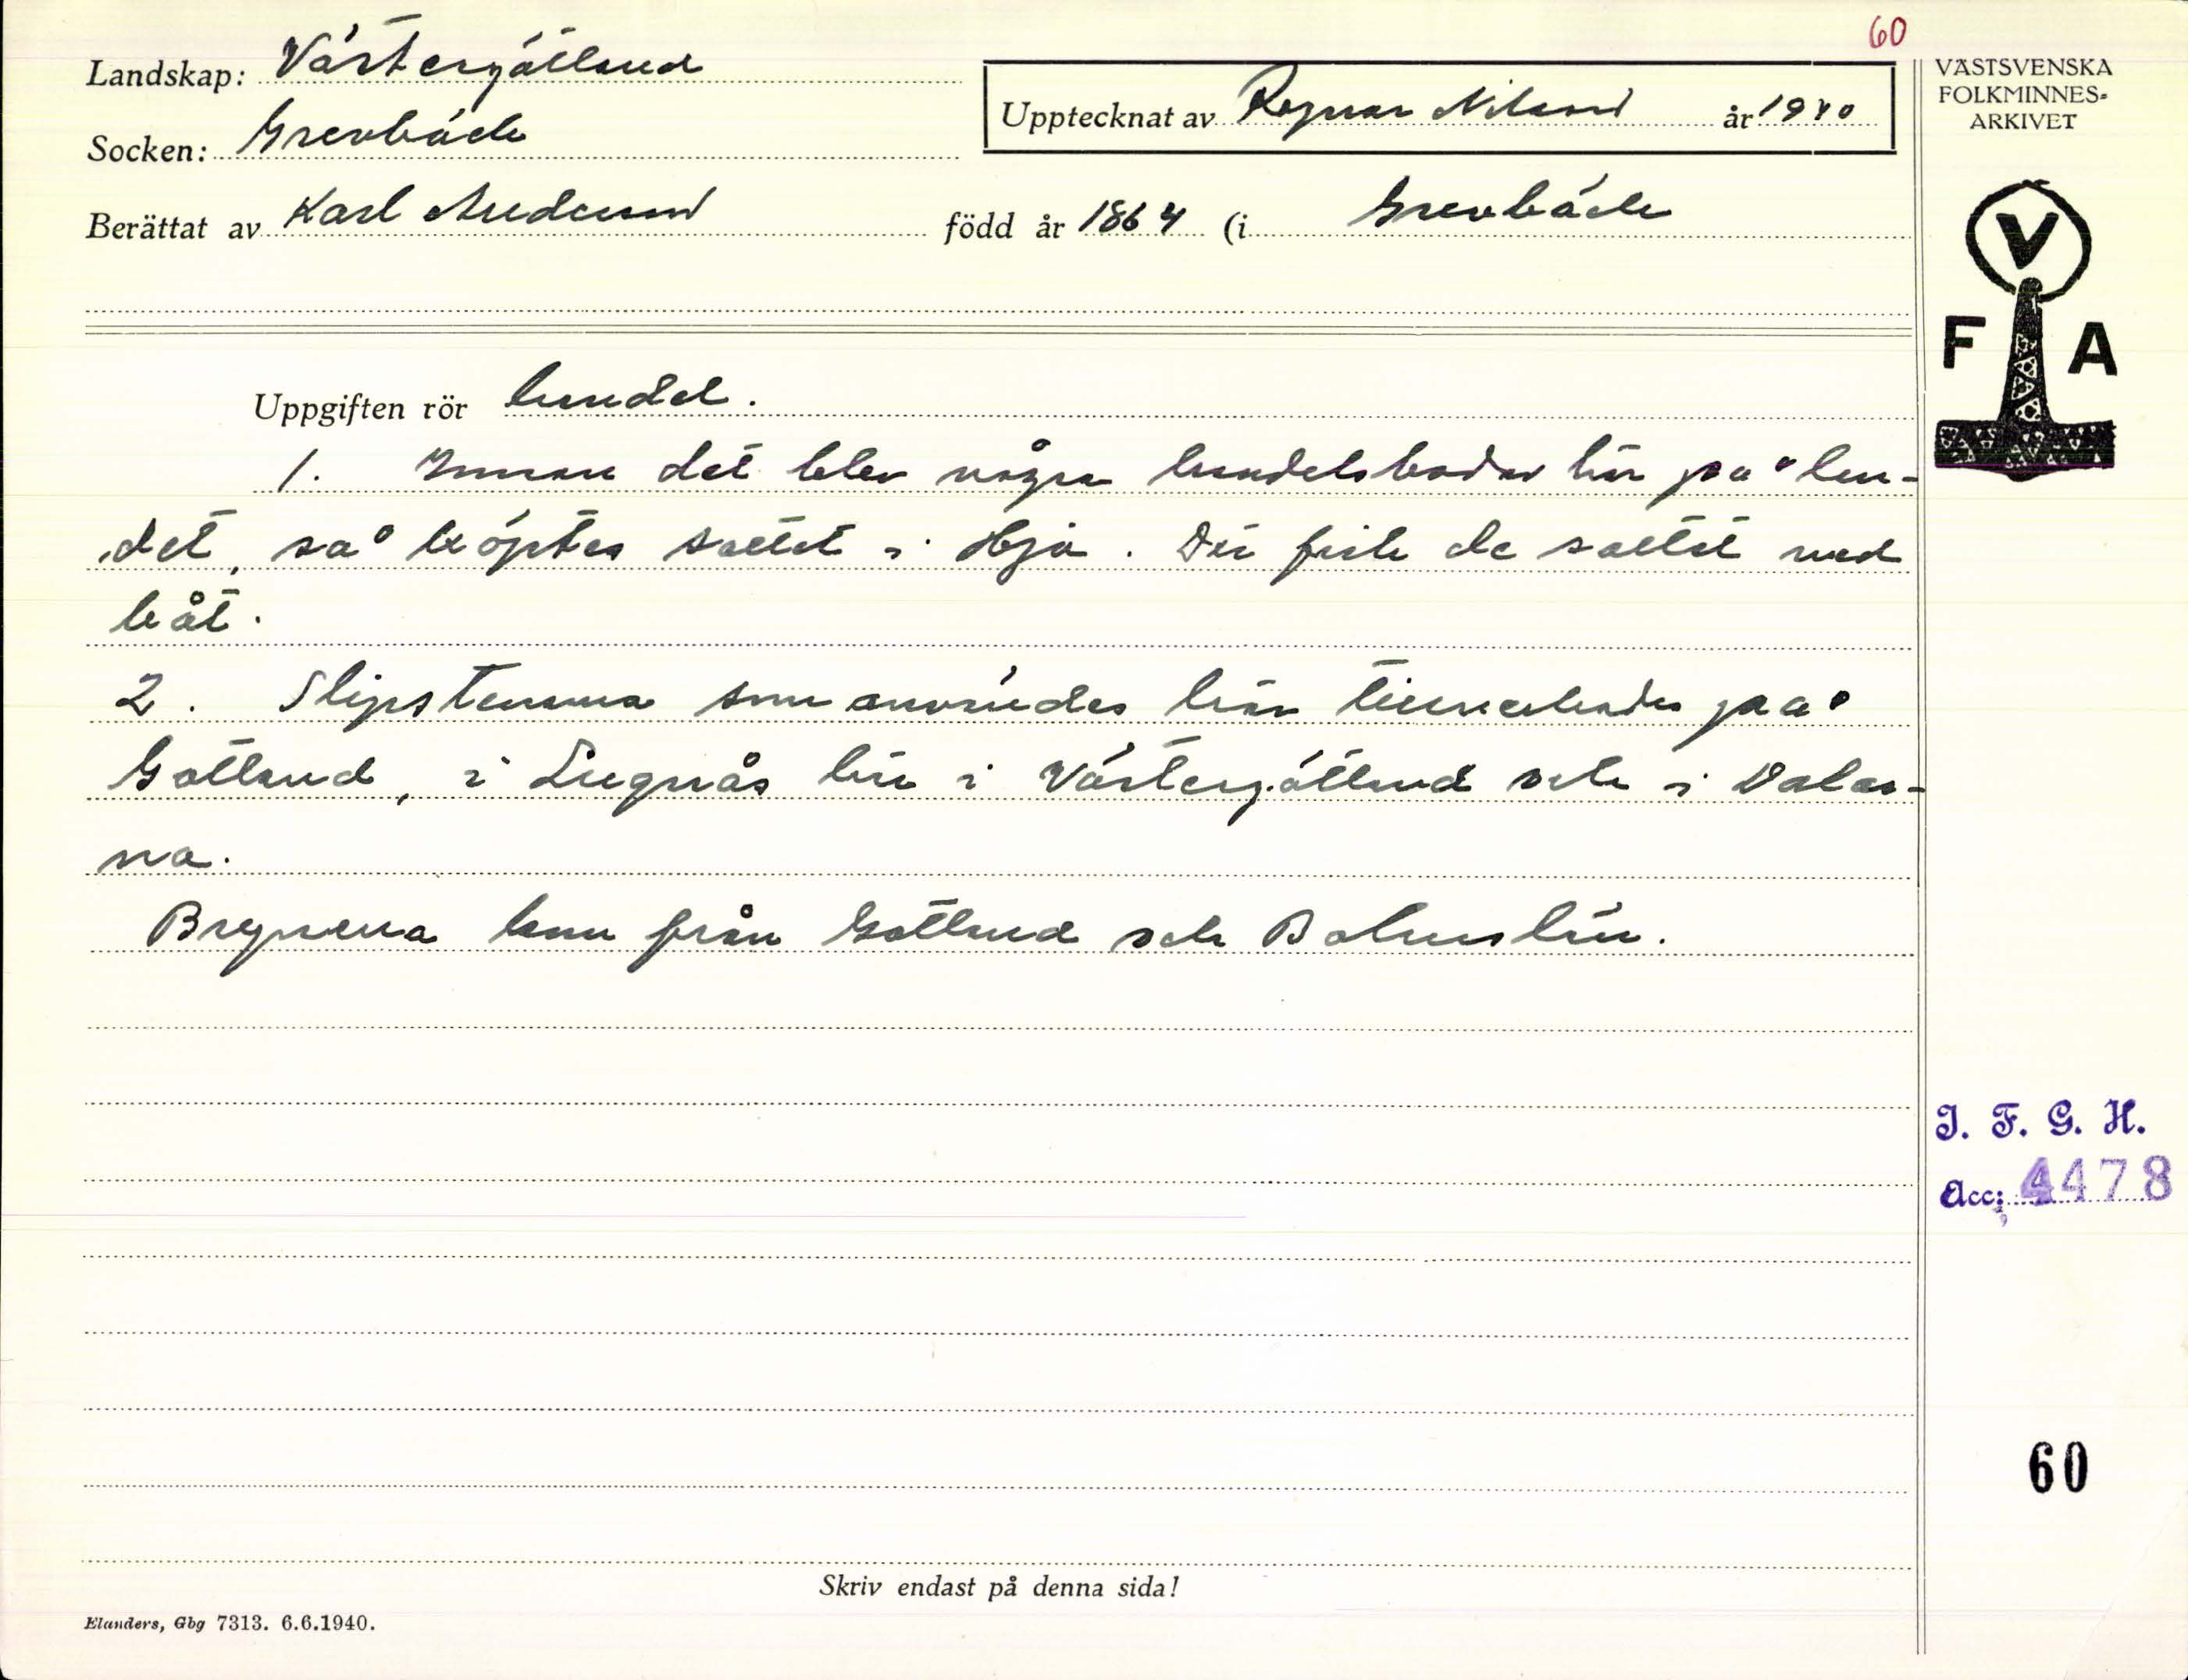 60
Landskap: Västergötland
VÄSTSVENSKA
FOLKMINNES-
ARKIVET
Upptecknat av Ragnar Nilsson år 1940
Socken: Grevbäck
Berättat av Karl Andersson född år 1864 (i Grevbäck
V
F A
Uppgiften rör handel.
1. Innan det blev några handelsbodar här på lan-
det, så köptes saltet i Hjo. Dit fick de saltet med
båt.
2. Slipstenarna som användes här tillverkades på
Gotland, i Lugnås här i Västergötland och i Dalar-
na.
Brynena kom från Gotland och Bohuslän.
I. F. G. H.
Acc: 4478
60
Skriv endast på denna sida!
Elanders, Gbg 7313. 6.6.1940.